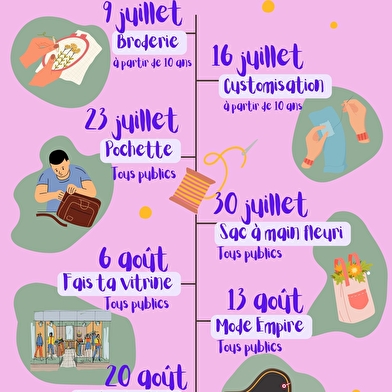 9 juillet
Broderie
à partir de 10 ans
16 juillet
Customisation
à partir de 10 ans
23 juillet
Pochette
Tous publics
30 juillet
Sac à main fleuri
Tous publics
6 août
Fais ta vitrine
Tous publics
13 août
Mode Empire
Tous publics
20 août